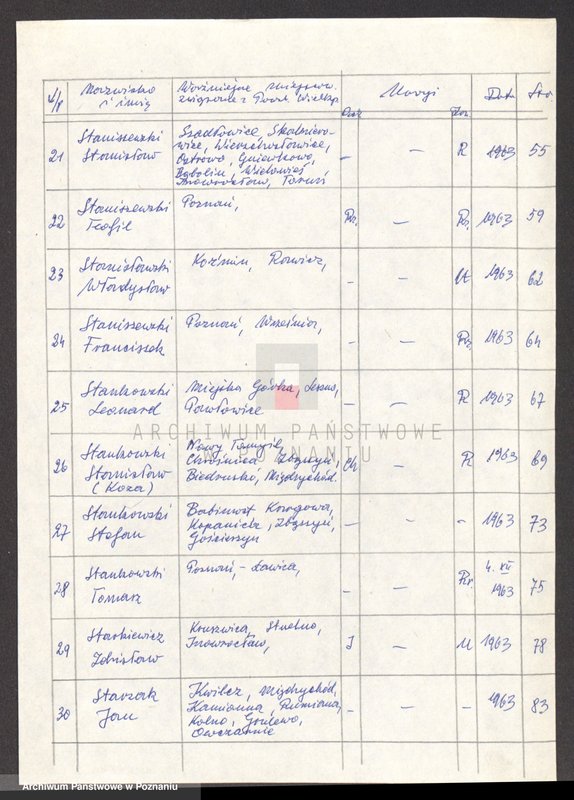 L/p Nazwisko i imię
Ważniejsze miejscow. związane z Powst. Wielkp.
Uwagi
Data Str.
21 Staniszewski Stanisław
Szadłowice, Skalmierowice, Wierzchosławice,
Ostrowo, Gniewkowo,
Inowrocław, Toruń
– – R 1963 55
22 Staniszewski Teofil
Poznań,
– 1963 59
23 Stanisławski Władysław
Koźmin, Rawicz,
– – 1963 62
24 Staniszewski Franciszek
Poznań, Września,
– – 1963 64
25 Stankowski Leonard
Miejska Górka, Leszno,
Pawłowice
– – R 1963 67
26 Stankowski Stanisław (Koza)
Nowy Tomyśl,
Chrośnica, Zbąszyń,
Biedrusko, Międzychód.
Ch – R 1963 69
27 Stankowski Stefan
Babimost, Kargowa,
Kopanica, Zbąszyń,
Gościeszyn
– – – 1963 73
28 Stankowski Tomasz
Poznań, – Ławica,
– – 4. XII 1963 75
29 Starkiewicz Zdzisław
Kruszwica, Strzelno,
Inowrocław,
J – U 1963 78
30 Starzak Jan
Kwilcz, Międzychód,
Kamionna,
Kolno,
– – – 1963 83
ARCHIWUM PAŃSTWOWE
W POZNANIU
Archiwum Państwowe w Poznaniu